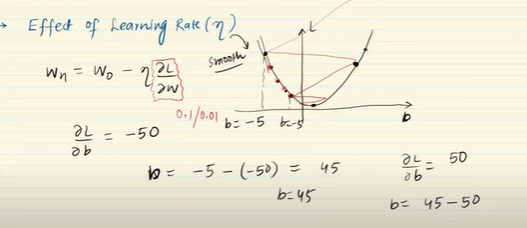 → Effect of Learning Rate (η)
L
smooth
Wn = Wo - η ∂L/∂w
0.1/0.01
b = -5 b=-5
b
∂L/∂b = -50
b = -5 - (-50) = 45
b=45
∂L/∂b = 50
b= 45-50